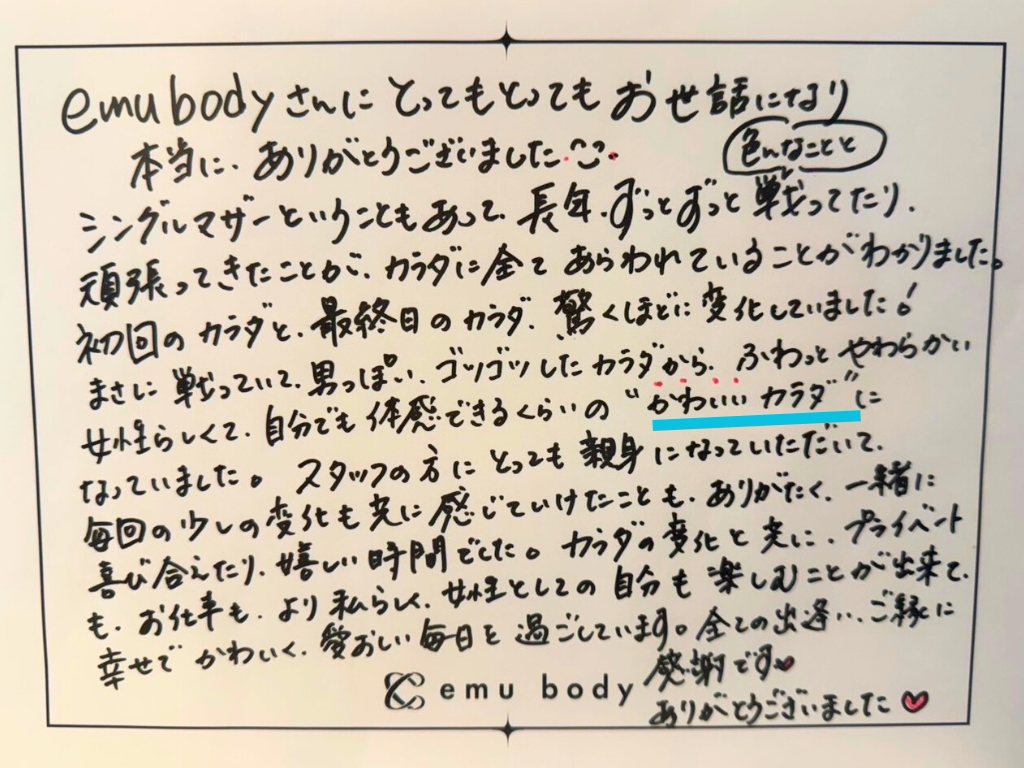 emu bodyさんに とってもとっても お世話になり
本当に、ありがとうございました
色んなことと
シングルマザーということもあって、長年、ずっとずっと 戦ってたり、
頑張ってきたことが、カラダに全て あらわれていることがわかりました。
初回のカラダと、最終日のカラダ、驚くほどに 変化していました!
まさに 戦っていて、男っぽい、ゴツゴツしたカラダから、ふわっと やわらかい
女性らしくて、自分でも体感できるくらいの "かわいい カラダ"に
なっていました。スタッフの方に とっても 親身になっていただいて、
毎回の少しの変化も共に感じていけたことも、ありがたく、一緒に
喜び合えたり、嬉しい時間でした。カラダの変化と共に、プライベート
も、お仕事も、より私らしく、女性としての自分も楽しむことが出来て、
幸せで かわいく、愛おしい毎日を過ごしています。全ての出逢い、ご縁に
感謝です
emu body
ありがとうございました